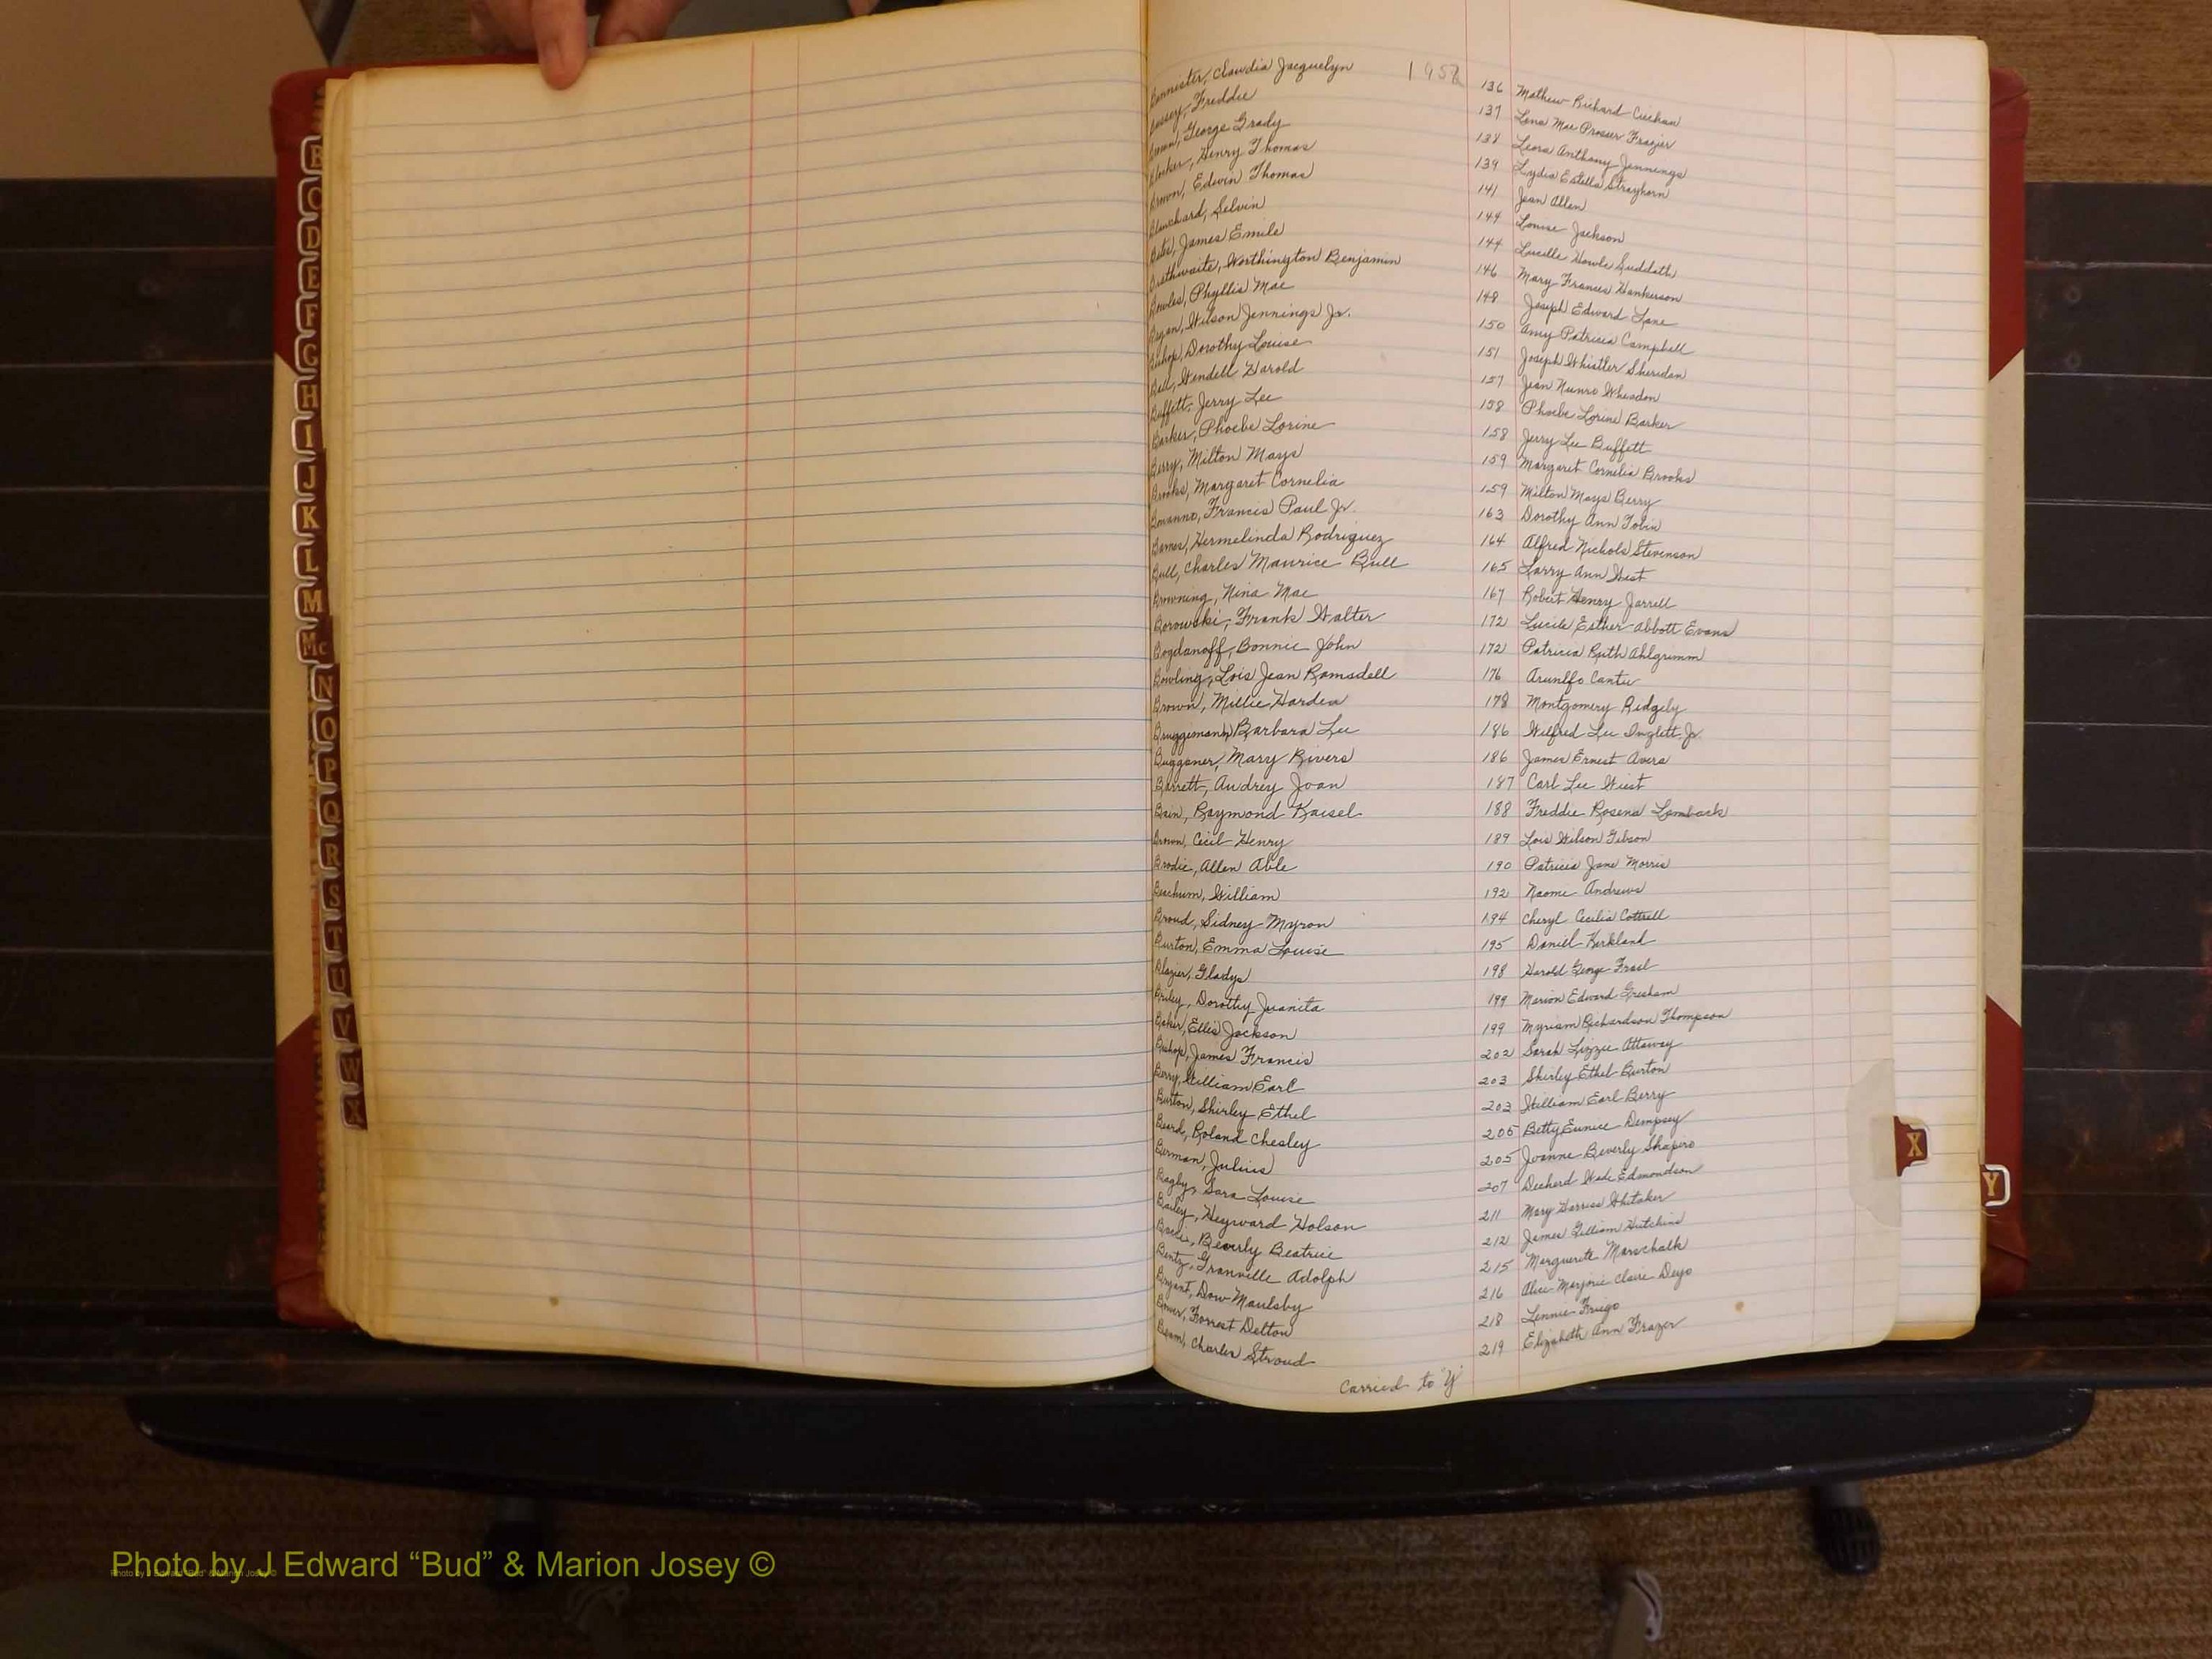 1958
Bannister, Claudia Jacquelyn 136 Mathew Richard
Bussey, Freddie 137 Lena Mae Prosser Frazier
Brown, George Grady 138 Leora Anthony Jennings
Blocker, Henry Thomas 139 Lydia Estella Strayhorn
Brown, Edwin Thomas 141 Jean Allen
Blanchard, Selvin 144 Louise Jackson
Bates, James Emile 144 Lucille Howle Suddath
Brathwaite, Worthington Benjamin 146 Mary Frances Hankerson
Bowles, Phyllis Mae 148 Joseph Edward Lane
Bryan, Wilson Jennings Jr. 150 Amy Patricia Campbell
Bishop, Dorothy Louise 151 Joseph Whistler Sheridan
Bell, Wendell Harold 157 Jean Nunro Wheadon
Buffett, Jerry Lee 158 Phoebe Lorine Barker
Barker, Phoebe Lorine 158 Jerry Lee Buffett
Berry, Milton Mays 159 Margaret Cornelia Brooks
Brooks, Margaret Cornelia 159 Milton Mays Berry
Bonanno, Francis Paul Jr. 163 Dorothy Ann Tobin
Barnes, Hermelinda Rodriguez 164 Alfred Nichols Stevenson
Bull, Charles Maurice Bull 165 Larry Ann West
Browning, Nina Mae 167 Robert Henry Jarrell
Borowski, Frank Walter 172 Lucile Esther Abbott Evans
Bogdanoff, Bonnie John 172 Patricia Ruth Ahlgrimm
Bowling, Lois Jean Ramsdell 176 Arunlfo Cantu
Brown, Millie Harden 178 Montgomery Ridgely
Bruggemann, Barbara Lee 186 Wilfred Lee Inglett, Jr.
Buggoner, Mary Rivers 186 James Ernest Avera
Barrett, Audrey Joan 187 Carl Lee Wiest
Bain, Raymond Kaisel 188 Freddie Rosena Lamback
Brown, Cecil Henry 189 Lois Wilson Gibson
Brodie, Allen Able 190 Patricia Jane Morris
Beachum, William 192 Naomi Andrews
Broud, Sidney Myron 194 Cheryl Cecilia Cottrell
Burton, Emma Louise 195 Daniel Kirkland
Blazier, Gladys 198 Harold George Frail
Briley, Dorothy Juanita 199 Marion Edward Gresham
Baker, Ellis Jackson 199 Myriam Richardson Thompson
Bishop, James Francis 202 Sarah Lizzie Attaway
Berry, William Earl 203 Shirley Ethel Burton
Burton, Shirley Ethel 203 William Earl Berry
Beard, Roland Chesley 205 Betty Eunice Dempsey
Berman, Julius 205 Joanne Beverly Shapiro
Bagby, Sara Louise 207 Decherd Wade Edmondson
Bailey, Heyward Holson 211 Mary Harriss Whitaker
Beverly Beatrice 212 James Gilliam Hutchins
Bentz, Granville Adolph 215 Marguerite Marschalk
Bryant, Dow Maulsby 216 Alice Marjorie Claire Deyo
Bower, Forrest Delton 218 Lennie
Beam, Charles Stroud 219 Elizabeth Ann Frazer
Carried to "Y"
B
C
D
E
F
G
H
I
J
K
L
M
Mc
N
O
P
Q
R
S
T
U
V
W
X
X
Y
Photo by J Edward “Bud” & Marion Josey ©
Photo by J Edward “Bud” & Marion Josey ©